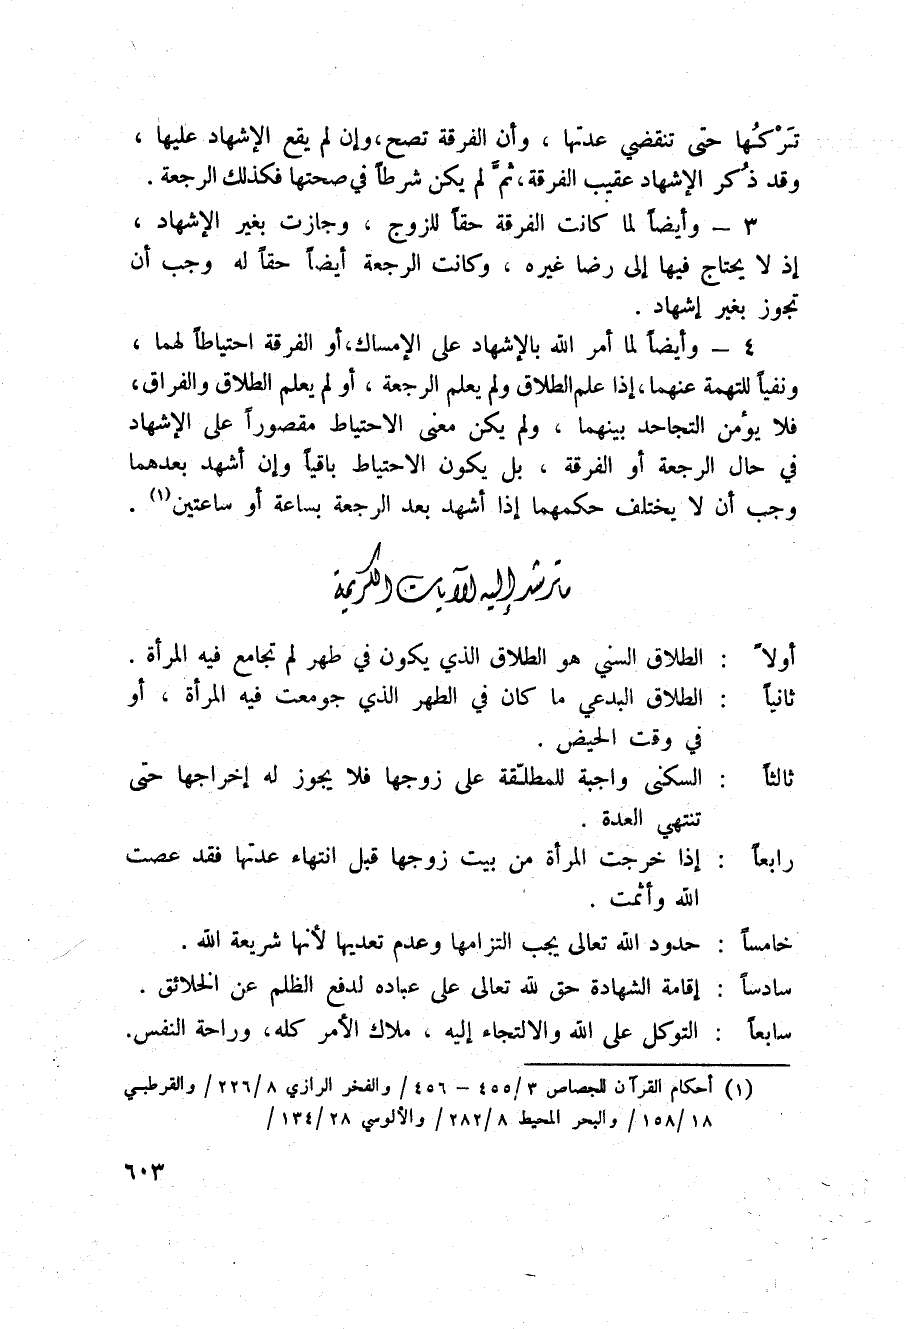 تَرْكُها حتى تنقضي عدتها ، وأن الفرقة تصح،وإن لم يقع الإشهاد عليها ،
وقد ذُكر الإشهاد عقيب الفرقة،ثمَّ لم يكن شرطاً في صحتها فكذلك الرجعة .
٣ – وأيضاً لما كانت الفرقة حقاً للزوج ، وجازت بغير الإشهاد ،
إذ لا يحتاج فيها إلى رضا غيره ، وكانت الرجعة أيضاً حقاً له وجب أن
تجوز بغير إشهاد .
٤ – وأيضاً لما أمر الله بالإشهاد على الإمساك،أو الفرقة احتياطاً لهما ،
ونفياً للتهمة عنهما،إذا علم الطلاق ولم يعلم الرجعة ، أو لم يعلم الطلاق والفراق،
فلا يؤمن التجاحد بينهما ، ولم يكن معنى الاحتياط مقصوراً على الإشهاد
في حال الرجعة أو الفرقة ، بل يكون الاحتياط باقياً وإن أشهد بعدهما
وجب أن لا يختلف حكمهما إذا أشهد بعد الرجعة بساعة أو ساعتين(١) .
ما ترشد إليه الآيات الكريمة
أولاً : الطلاق السني هو الطلاق الذي يكون في طهر لم تجامع فيه المرأة .
ثانياً : الطلاق البدعي ما كان في الطهر الذي جومعت فيه المرأة ، أو
في وقت الحيض .
ثالثاً : السكنى واجبة للمطلّقة على زوجها فلا يجوز له إخراجها حتى
تنتهي العدة .
رابعاً : إذا خرجت المرأة من بيت زوجها قبل انتهاء عدتها فقد عصت
الله وأثمت .
خامساً : حدود الله تعالى يجب التزامها وعدم تعديها لأنها شريعة الله .
سادساً : إقامة الشهادة حق لله تعالى على عباده لدفع الظلم عن الخلائق .
سابعاً : التوكل على الله والالتجاء إليه ، ملاك الأمر كله، وراحة النفس.
(١) أحكام القرآن للجصاص ٣/٤٥٥ – ٤٥٦/ والفخر الرازي ٨/٢٢٦/ والقرطبي
١٨/١٥٨/ والبحر المحيط ٨/٢٨٢/ والألوسي ٢٨/١٣٤/
٦٠٣